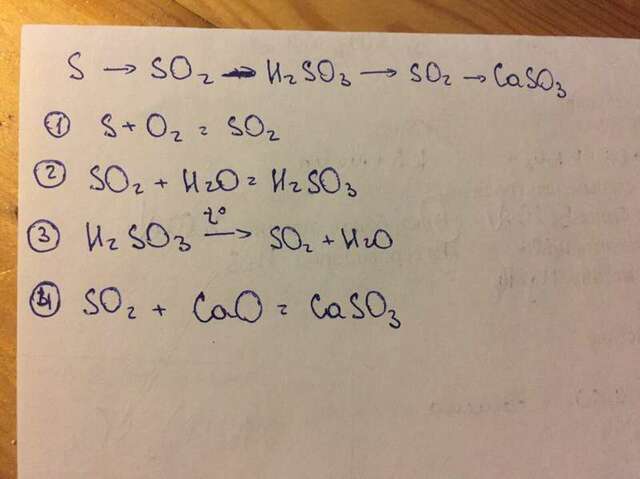 S → SO₂ → H₂SO₃ → SO₂ → CaSO₃
① S + O₂ = SO₂
② SO₂ + H₂O = H₂SO₃
③ H₂SO₃ t°→ SO₂ + H₂O
④ SO₂ + CaO = CaSO₃